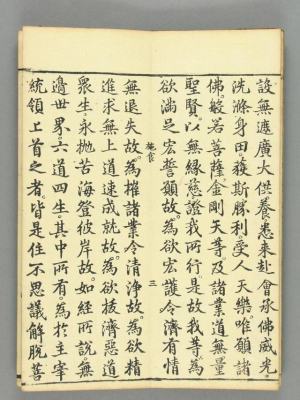 設無遮廣大供養悉來赴會承佛威光
洗滌身田獲斯勝利受人天樂唯願諸
佛般若菩薩金剛天等及諸業道無量
聖賢以無緣慈證我所行是故我等為
欲滿足宏誓願故為欲宏護令濟有情
施食 三
無退失故為摧諸業令清淨故為欲精
進求無上道速成就故為欲拔濟惡道
眾生永拋苦海登彼岸故如經所說無
邊世界六道四生其中所有為於主宰
統領上首之者皆是住不思議解脫菩